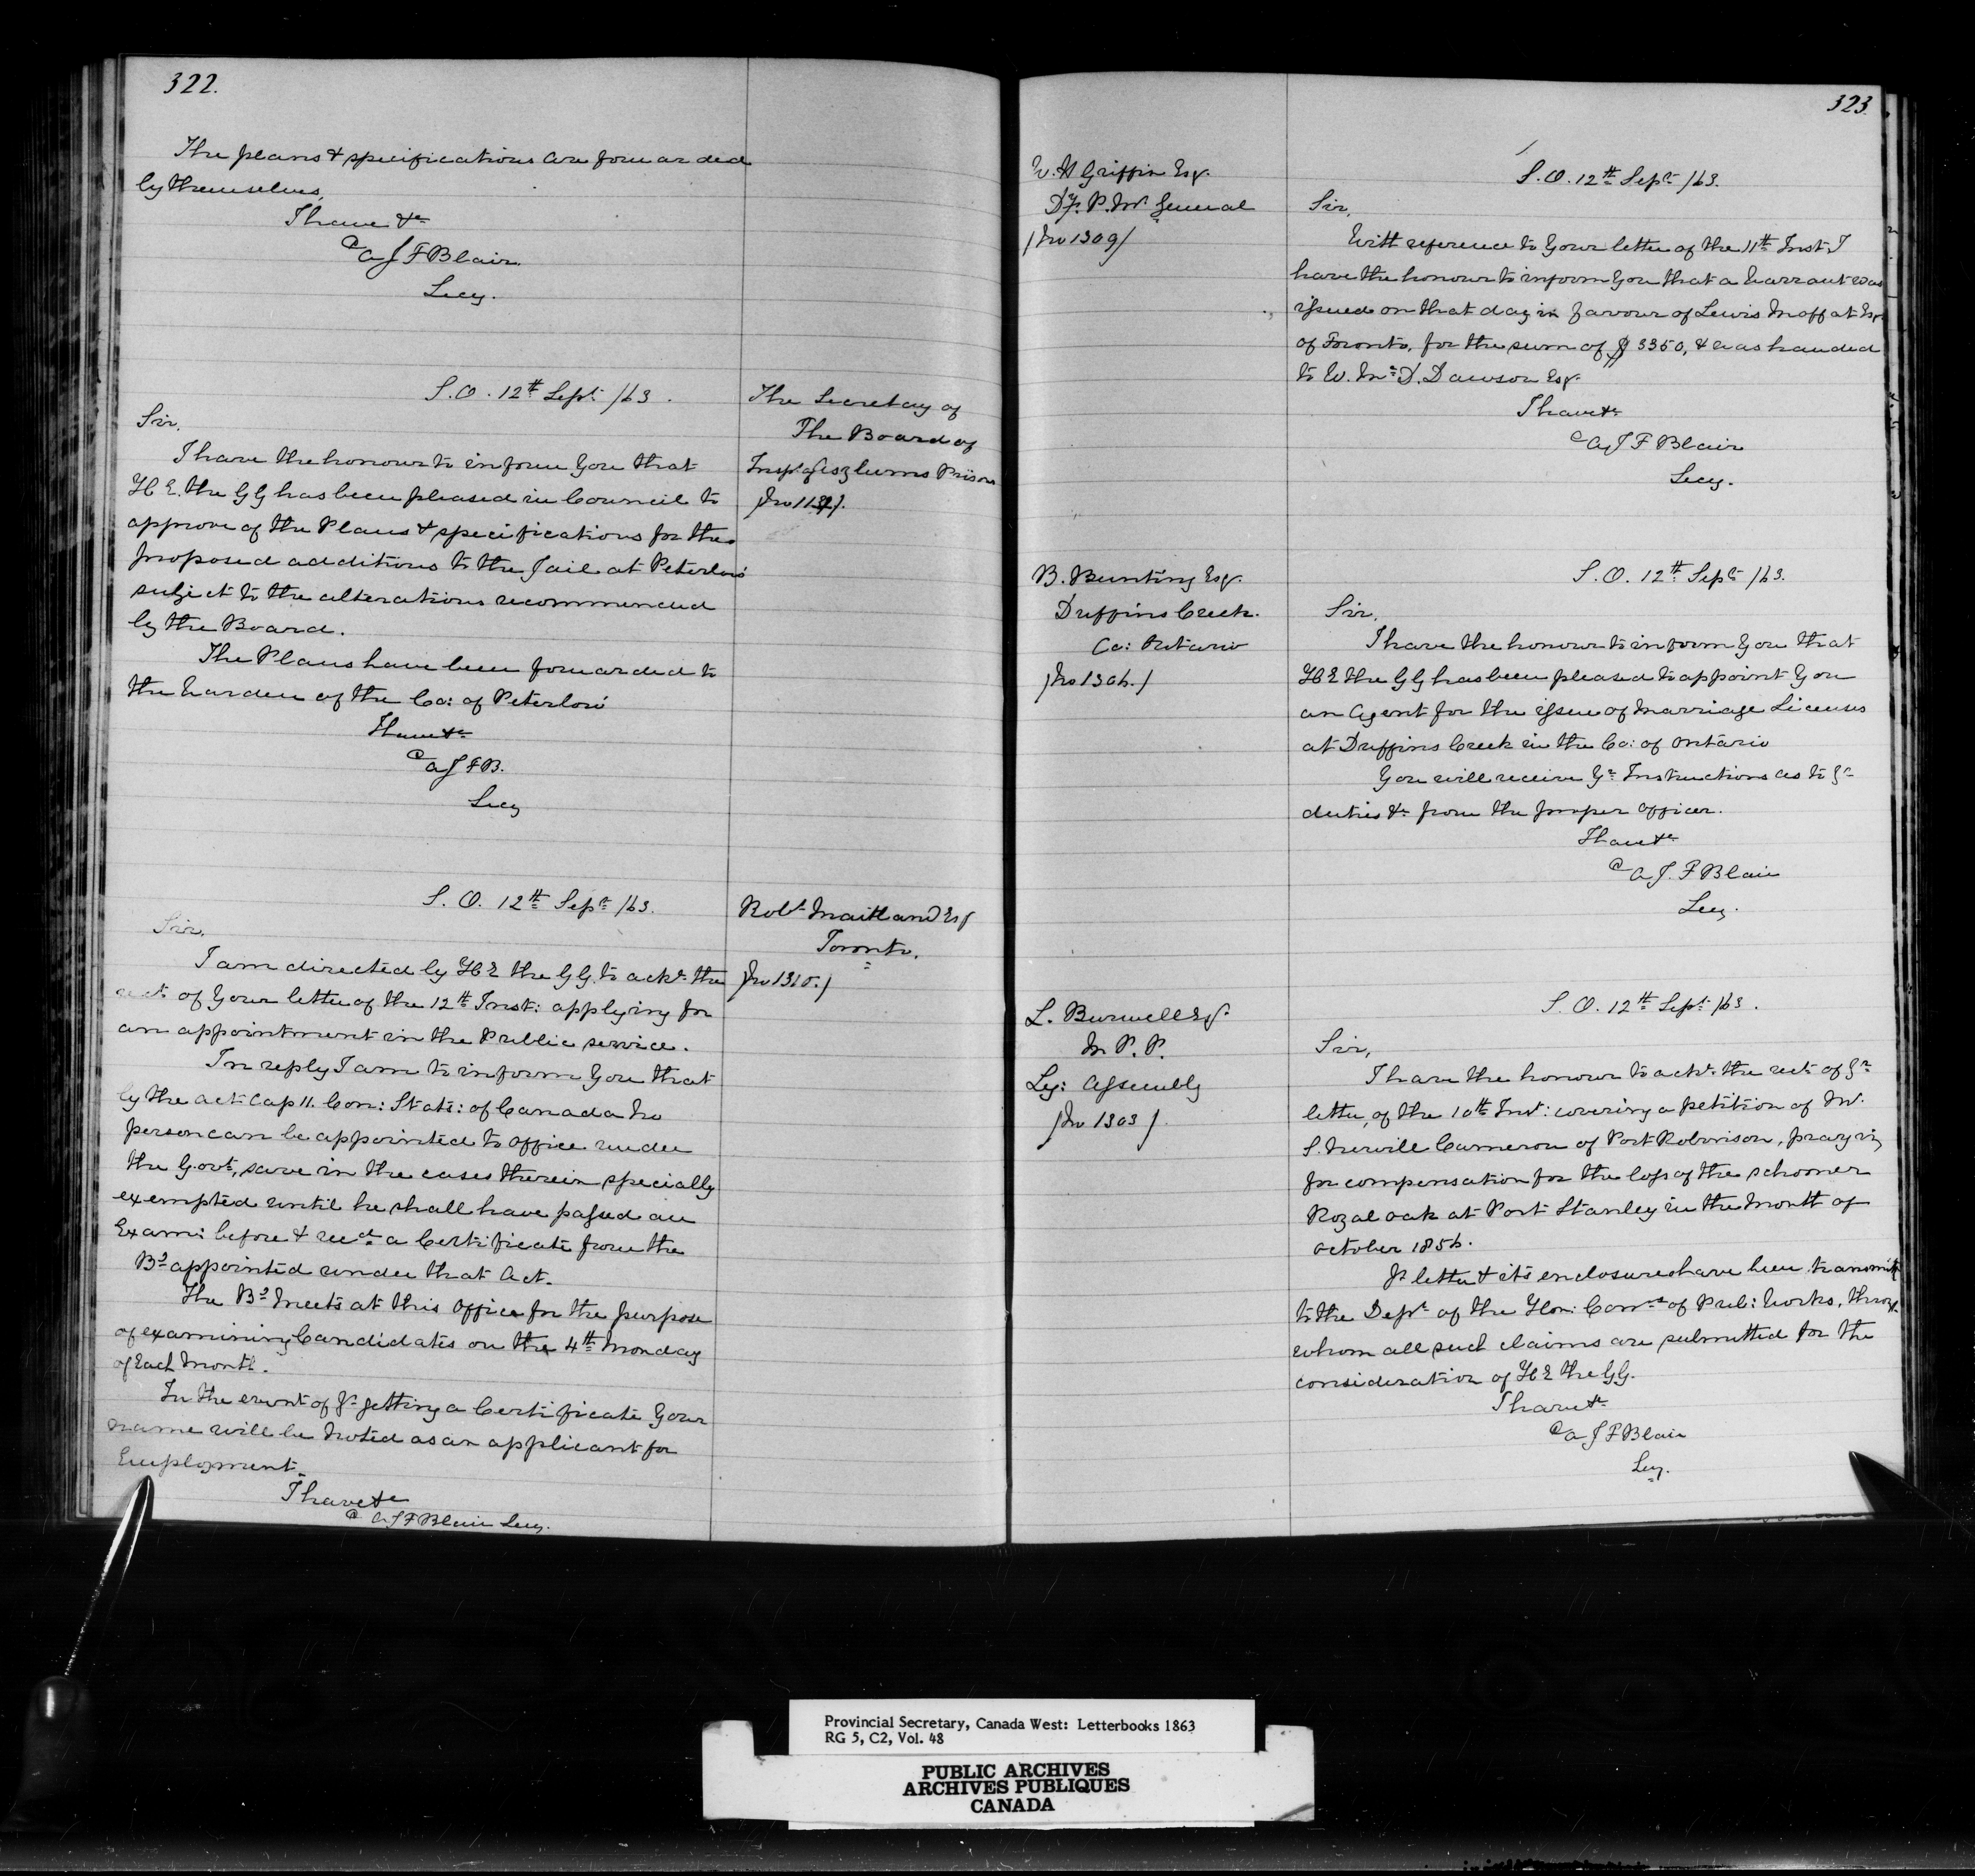 322.
The plans & specifications are forwarded
by themselves,
I have &c
A J F Blair
Secy.
S. O. 12th Sept /63.
The Secretary of
The Board of
Insp. of Aszlums Prisons
Sir,
I have the honour to inform you that
H E. the GG has been pleased in Council to
approve of the Plans & specifications for the
proposed additions to the Jail at Peterboro'
subject to the alterations recommended
by the Board.
The Plans have been forwarded to
the Warden of the Co: of Peterboro'
I have &c
A J F B.
Secy
S. O. 12th Sept /63.
Robt Maitland Esq
Toronto.
(No 1310.)
Sir,
I am directed by H E the GG. to acke. the
rect. of your letter of the 12th Inst: applying for
an appointment in the Public service.
In reply I am to inform you that
by the act Cap 11. Con: Stats: of Canada no
person can be appointed to office under
the Govt, save in the cases therein specially
exempted until he shall have passed an
Exam: before & recd a Certificate from the
Bd appointed under that Act.
The Bd meets at this Office for the purpose
of examining Candidates on the 4th Monday
of Each Month.
In the event of yr getting a Certificate your
name will be noted as an applicant for
Employment.
I have &c
A J F Blair Secy.
323
W. H Griffin Esq.
Dy. P. Mr General
(No 1309)
S. O. 12th Sept /63.
Sir,
With reference to your letter of the 11th Inst I
have the honour to inform you that a Warrant was
issued on that day in favour of Lewis Moffat Esqr
of Toronto, for the sum of $ 3350, & was handed
to W. Mc D. Dawson Esq.
I have &c
A J F Blair
Secy.
B. Bunting Esq.
Duffins Creek.
Co: Ontario
(No 1306.)
S. O. 12th Sept /63.
Sir,
I have the honour to inform you that
H E the GG has been pleased to appoint you
an Agent for the issue of Marriage Licenses
at Duffins Creek in the Co: of Ontario
You will receive yr Instructions as to yr
duties &c from the proper officer.
I have &c
A J. F Blair
Secy.
L. Burwell Esq.
M. P. P.
Leg: Assembly
(No 1303).
S. O. 12th Sept /63.
Sir,
I have the honour to ackn. the rect. of yr
letter, of the 10th Inst: covering a petition of Mr.
S. Nerville Cameron of Port Robinson, praying
for compensation for the loss of the schooner
Royal oak at Port Stanley in the Month of
October 1856.
Yr letter & its enclosure have been transmitt
to the Dept of the Hon: Comrs of Pub: Works, throug
whom all such claims are submitted for the
consideration of H E the GG.
I have &c
A J F Blair
Secy.
Provincial Secretary, Canada West: Letterbooks 1863
RG 5, C2, Vol. 48
PUBLIC ARCHIVES
ARCHIVES PUBLIQUES
CANADA